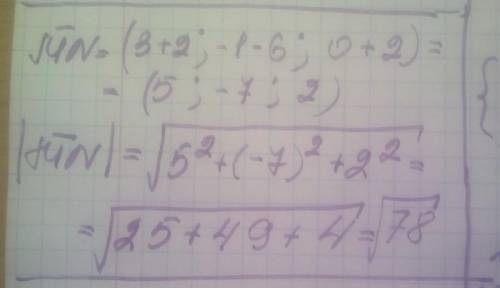 MN = (3+2; -1-6; 0+2) =
= (5; -7; 2)
|MN| = √5²+(-7)²+2² =
= √25+49+4 = √78